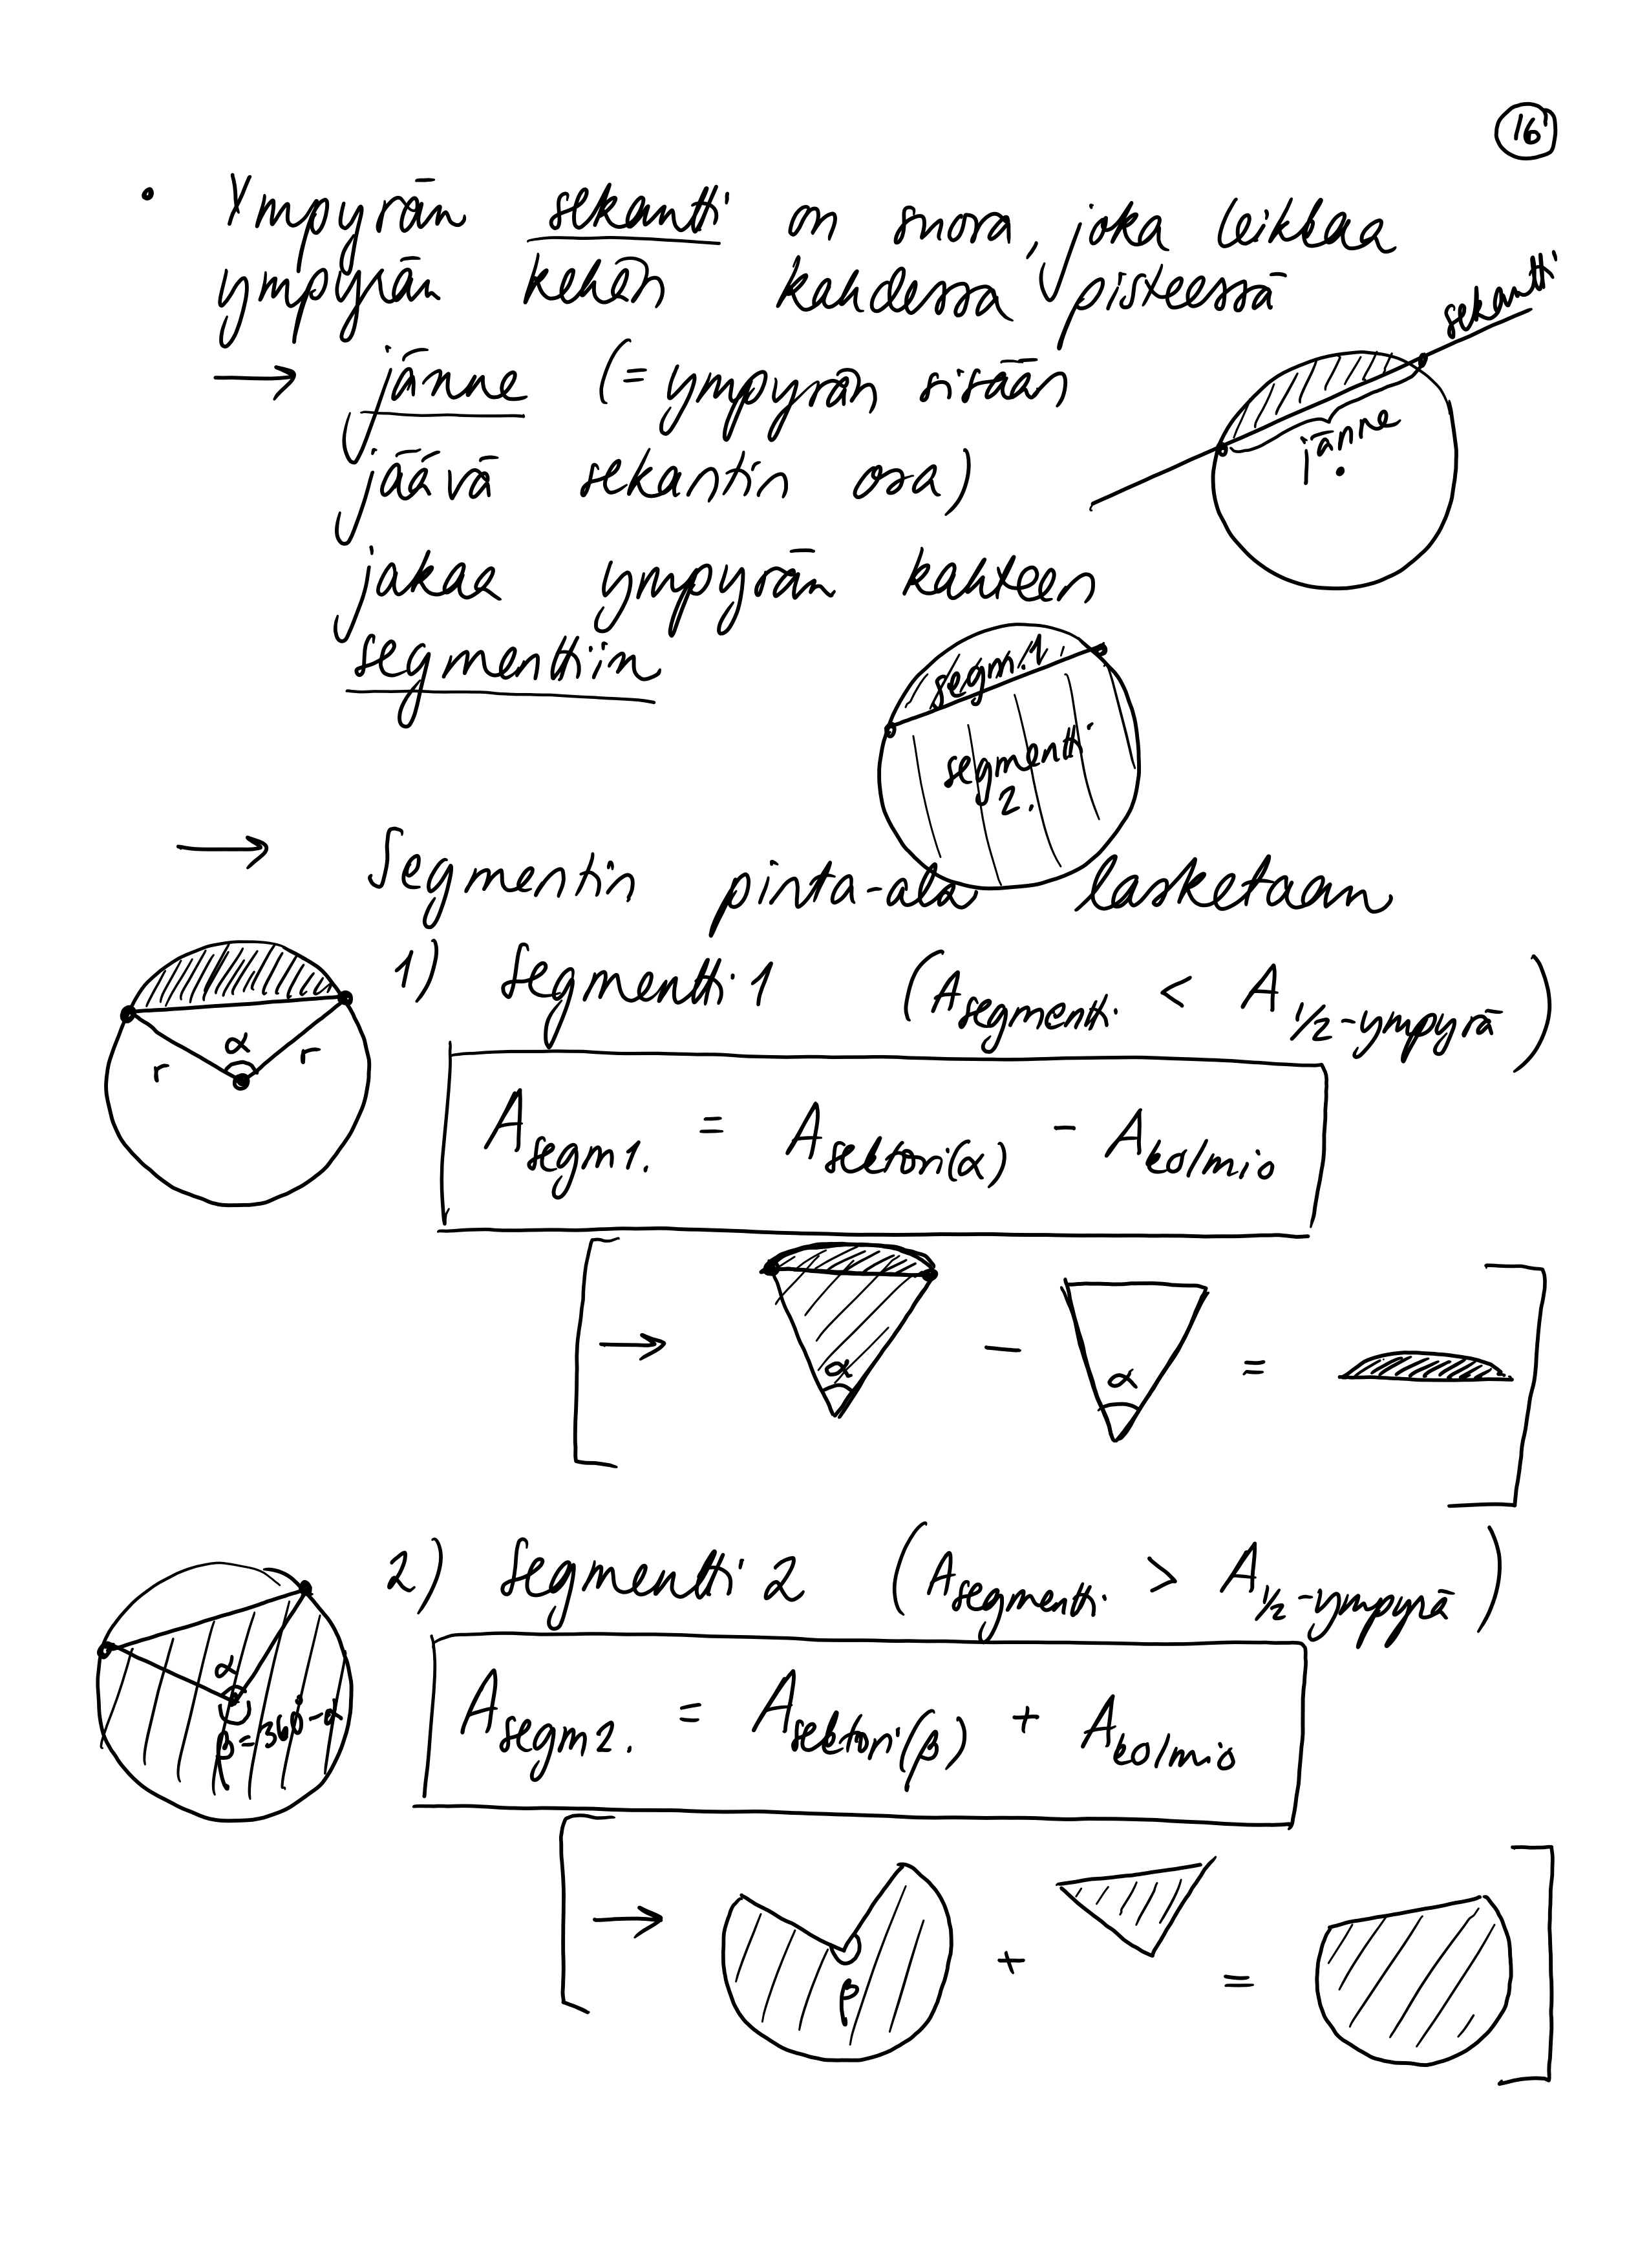 16
• Ympyrän sekantti on suora, joka leikkaa
ympyrän kehän kahdessa pisteessä
sekantti
→ jänne (= ympyrän sisään
jänne
jäävä sekantin osa)
jakaa ympyrän kahteen
segmenttiin
segm. 1
segmentti 2.
→ Segmentin pinta-ala lasketaan
1) Segmentti 1 (A_segmentti < A_1/2-ympyrä)
α
r r
A_segm1. = A_sektori(α) - A_kolmio
→ α - α =
2) Segmentti 2 (A_segmentti > A_1/2-ympyrä)
α
β = 360° - α
A_segm2. = A_sektori(β) + A_kolmio
→ β + =